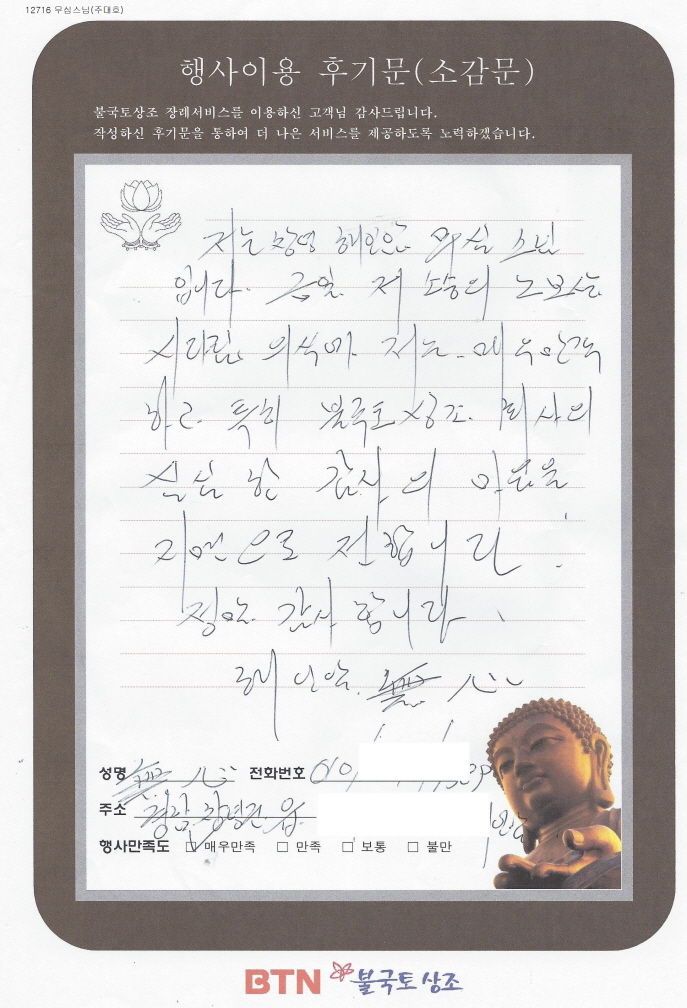 12716 무심스님(주대호)
행사이용 후기문(소감문)
불국토상조 장례서비스를 이용하신 고객님 감사드립니다.
작성하신 후기문을 통하여 더 나은 서비스를 제공하도록 노력하겠습니다.
저는 창녕 해인암 무심 스님
입니다. 금일 저 소승의 노보살
시다림 의식에 저는 매우 만족
하고 특히 불국토 상조 회사의
심심한 감사의 마음을
지면으로 전합니다!
정말 감사합니다.
해인암. 無心
성명 無心 전화번호 010
주소 경남 창녕군 읍
행사만족도 ☑ 매우만족 □ 만족 □ 보통 □ 불만
BTN 불국토상조